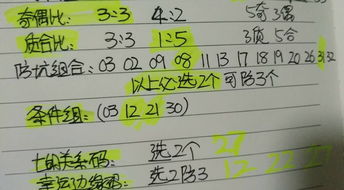 奇偶比: 3:3 4:2 5奇3偶
质合比: 3:3 1:5 3质5合
防坑组合: 03 02 09 08 11 13 17 18 19 20 26 31 32
以上必选2个可防3个
条件组: (03 12 21 30)
七的关系码: 选2个 27
幸运边缘码: 选2防3 12-22 27